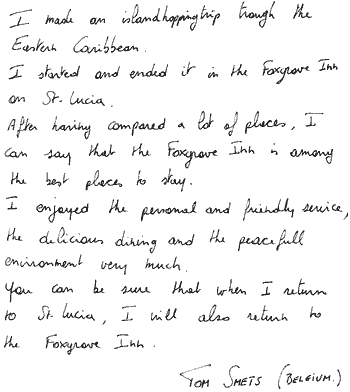 I made an islandhoppingtrip trough the
Eastern Caribbean.
I started and ended it in the Foxgrove Inn
on St. Lucia.
After having compared a lot of places, I
can say that the Foxgrove Inn is among
the best places to stay.
I enjoyed the personal and friendly service,
the delicious dining and the peacefull
environment very much.
You can be sure that when I return
to St. Lucia, I will also return to
the Foxgrove Inn.
TOM SMETS (BELGIUM.)